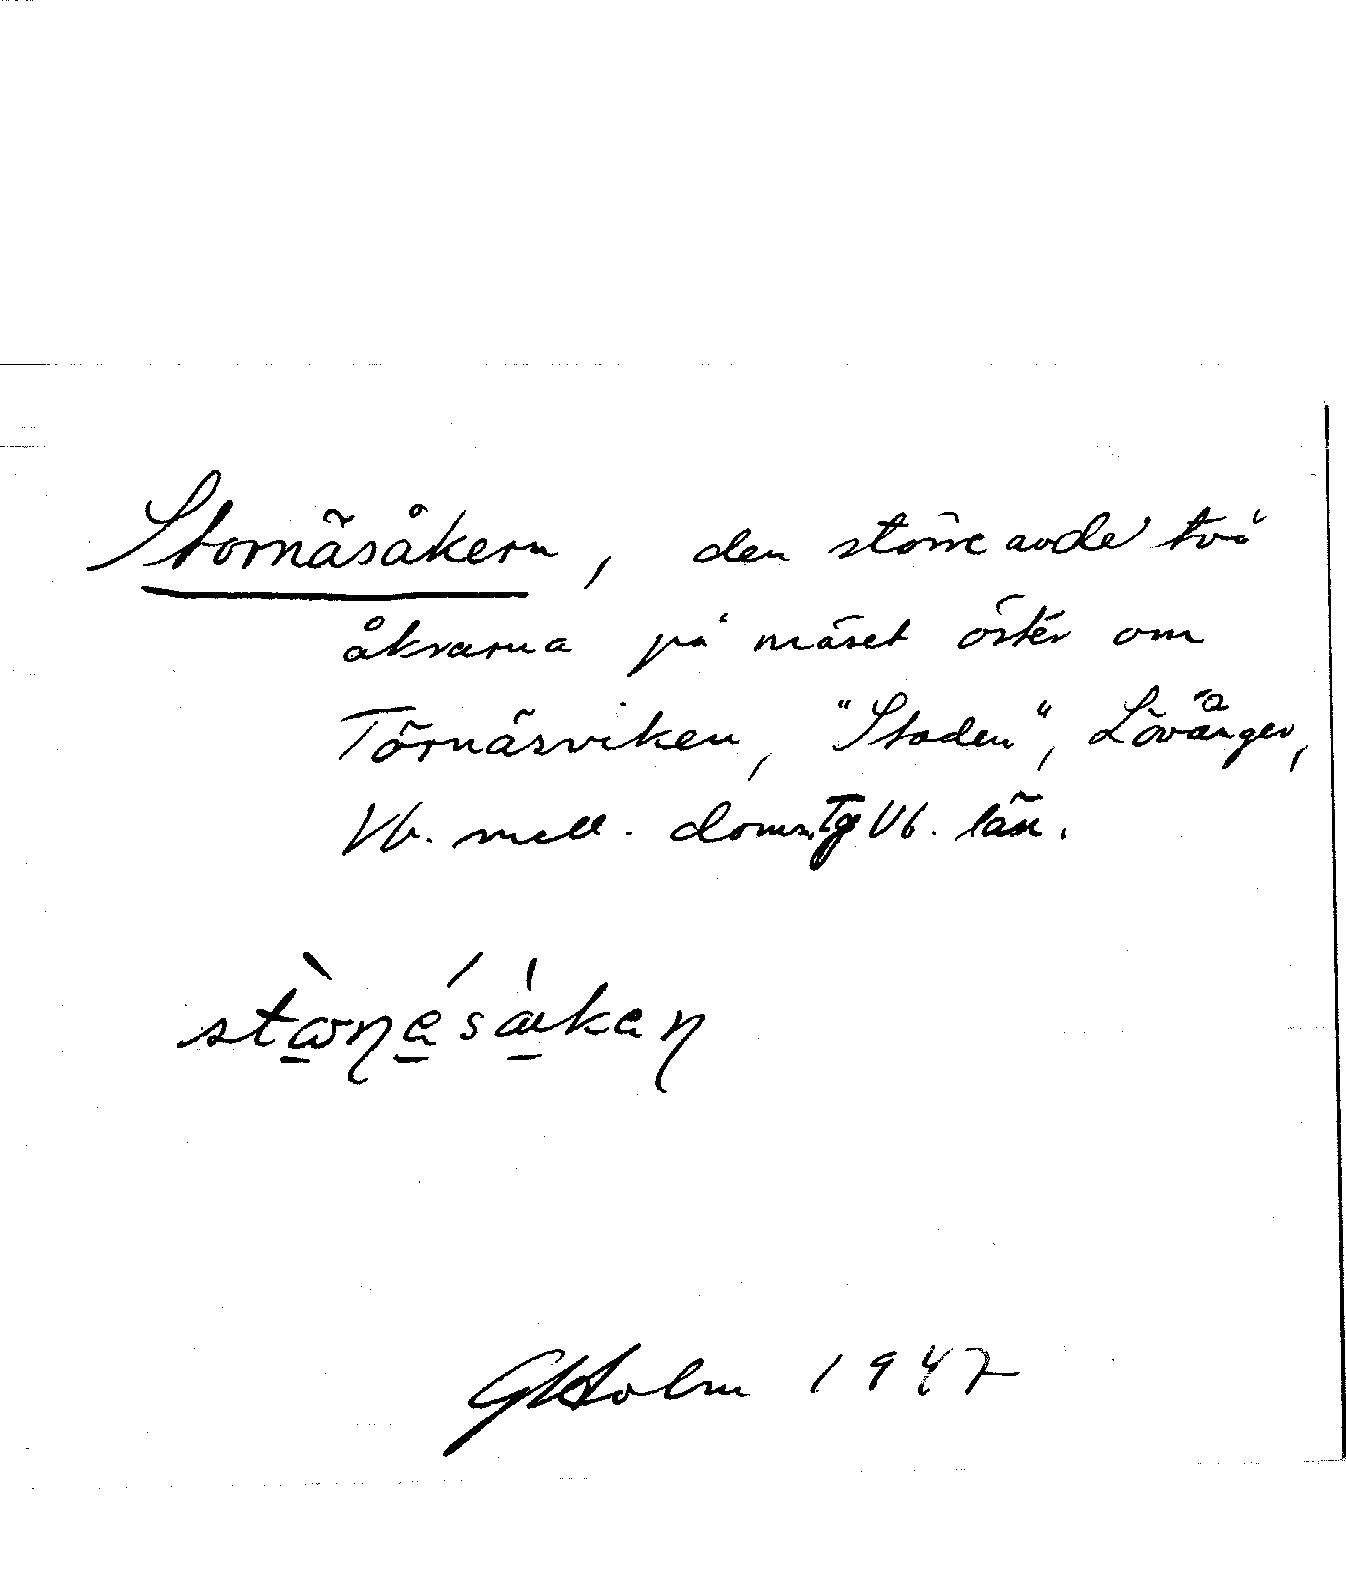 Stornäsåkern, den större av de två
åkrarna på näset öster om
Törnäsviken, "Staden", Lövånger,
Vb. mell. doms. Tg Vb. län.
GHolm 1947